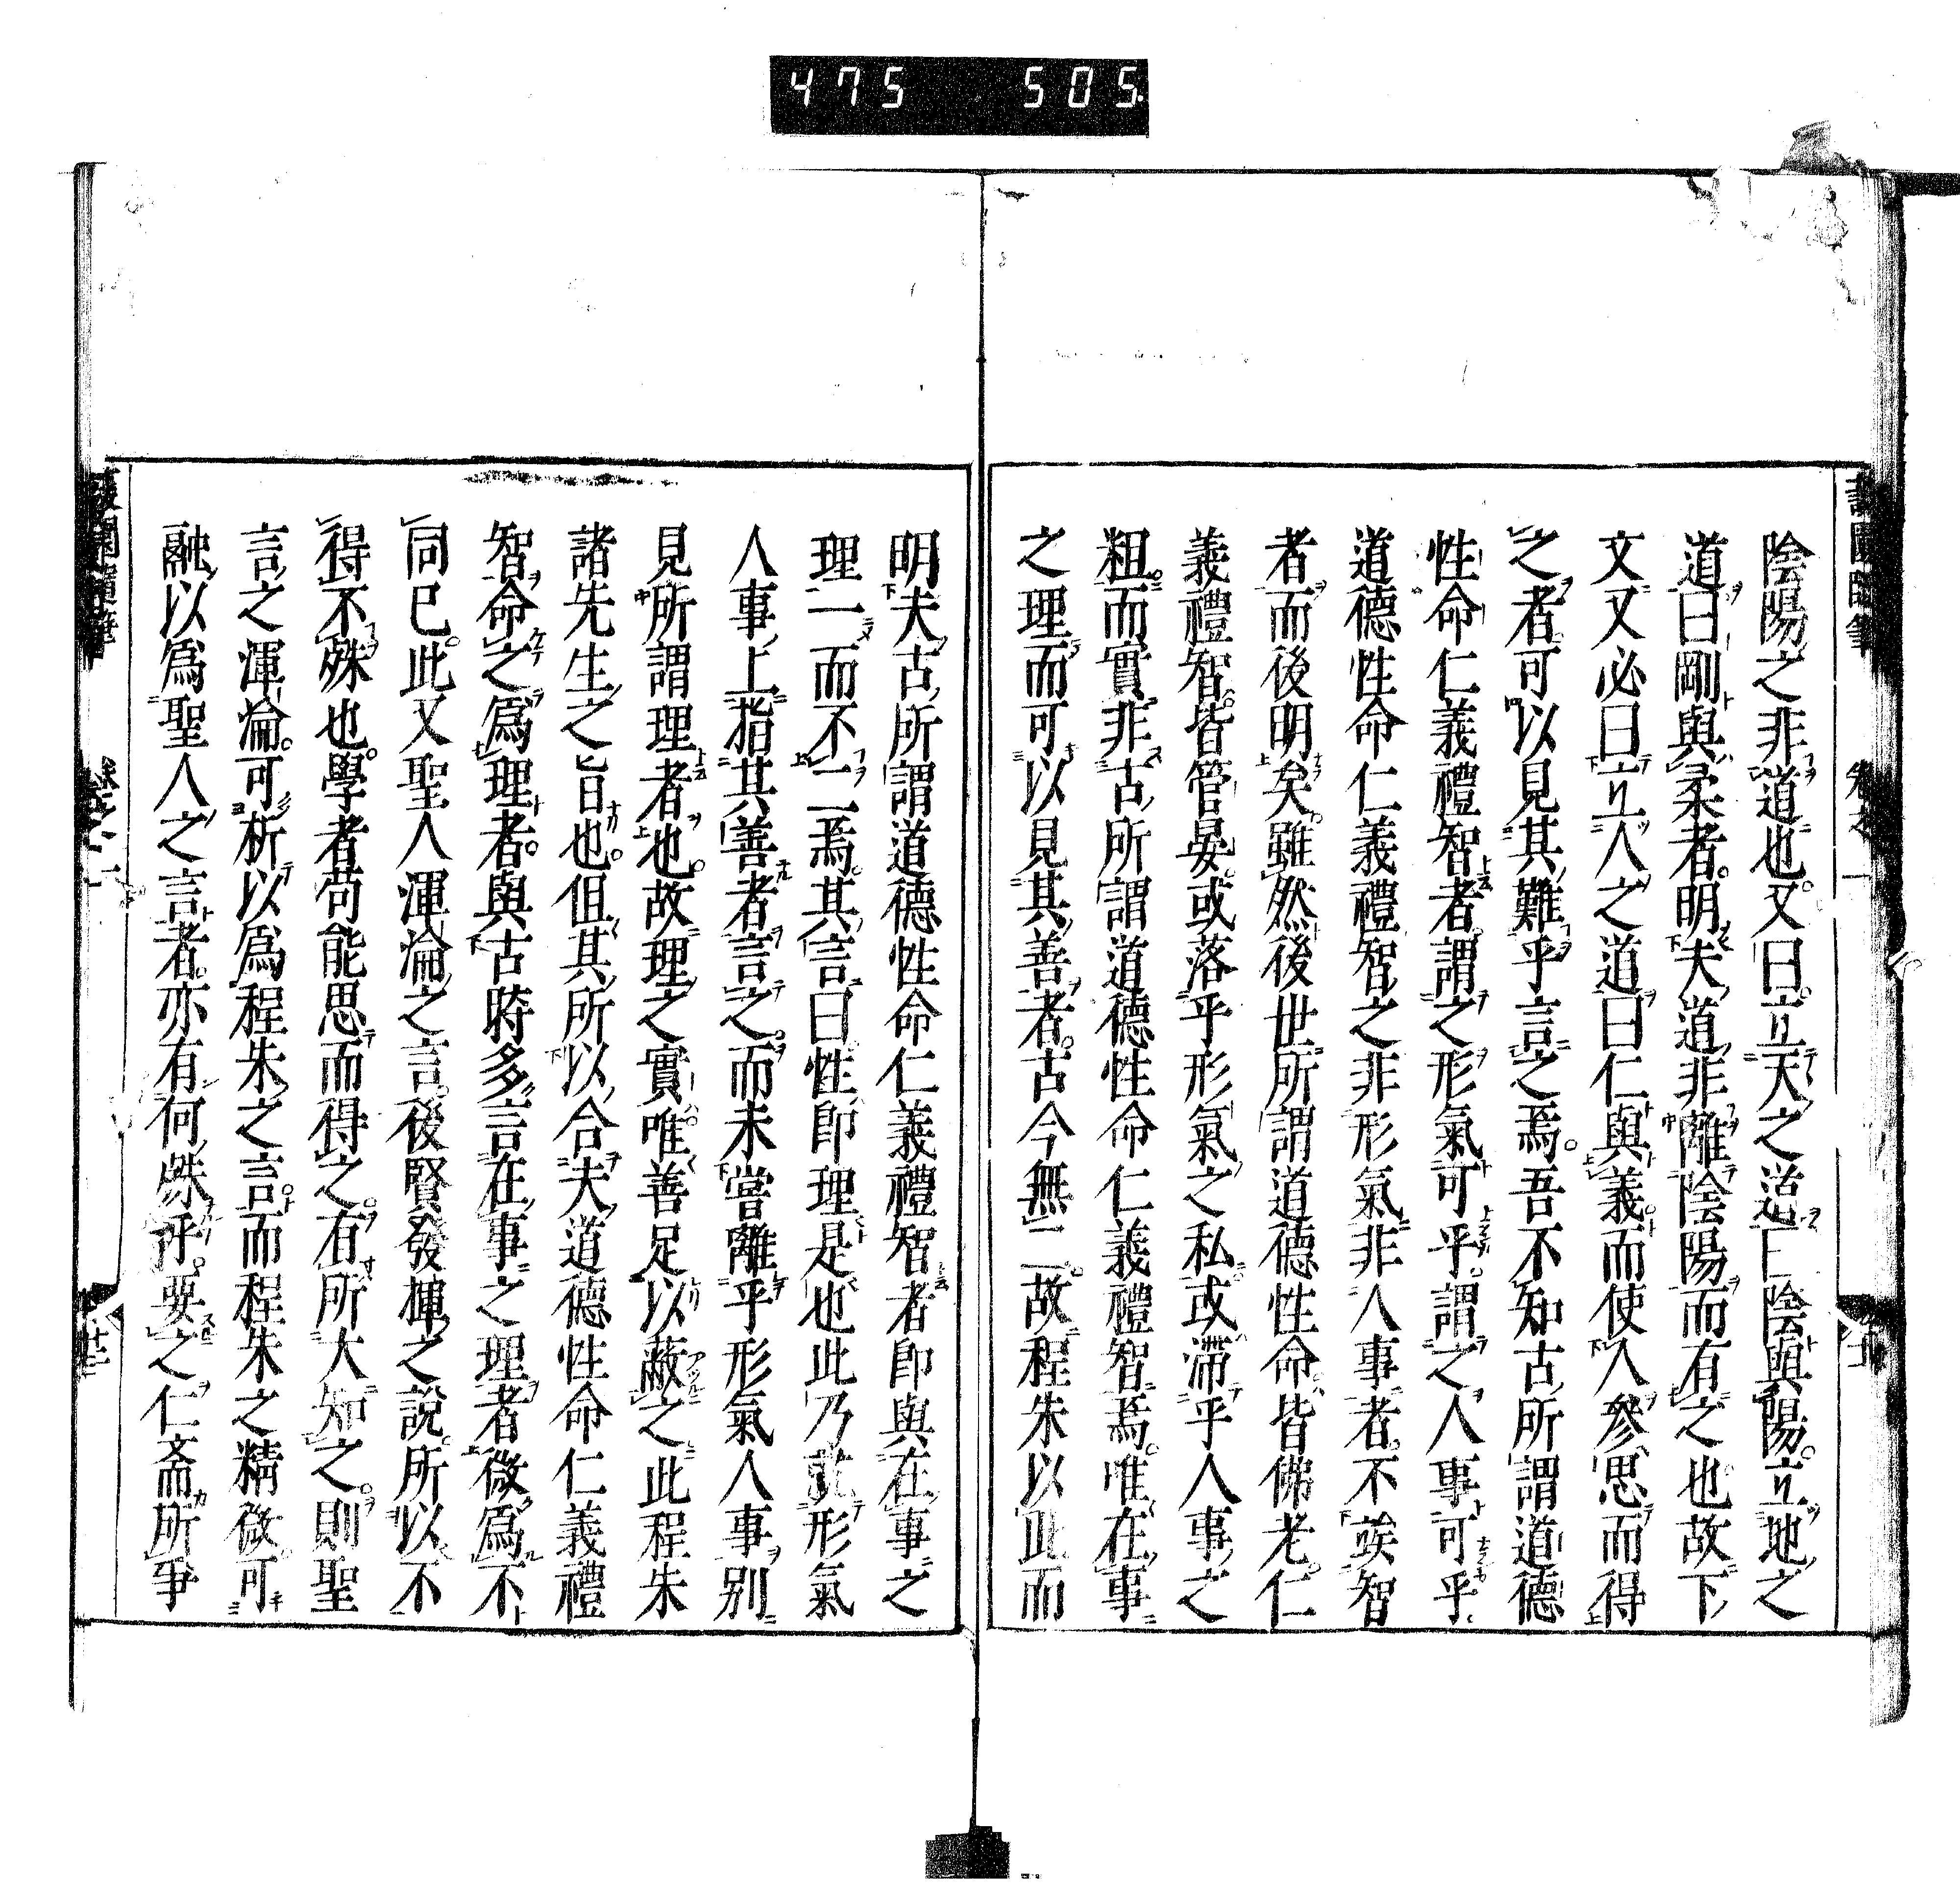 475 505
陰陽之非道也又曰立天之道曰陰與陽立地之
道曰剛與柔者明夫道非離陰陽而有之也故下
文又必曰立人之道曰仁與義而使人參思而得
之者可以見其難乎言之焉吾不知古所謂道德
性命仁義禮智者謂之形氣可乎謂之人事可乎
道德性命仁義禮智之非形氣非人事者不竢智
者而後明矣雖然後世所謂道德性命皆佛老仁
義禮智皆管晏或落乎形氣之私或滯乎人事之
粗而實非古所謂道德性命仁義禮智焉唯在事
之理而可以見其善者古今無二故程朱以此而
明夫古所謂道德性命仁義禮智者即與在事之
理一而不二焉其言曰性即理是也此乃就形氣
人事上指其善者言之而未嘗離乎形氣人事別
見所謂理者也故理之實唯善足以蔽之此程朱
諸先生之旨也但其所以合夫道德性命仁義禮
智命之爲理者與古時多言在事之理者微爲不
同已此又聖人渾淪之言後賢發揮之說所以不
得不殊也學者苟能思而得之有所大知之則聖
言之渾淪可析以爲程朱之言而程朱之精微可
融以爲聖人之言者亦有何殊乎要之仁斎所爭
園隨筆 卷之一